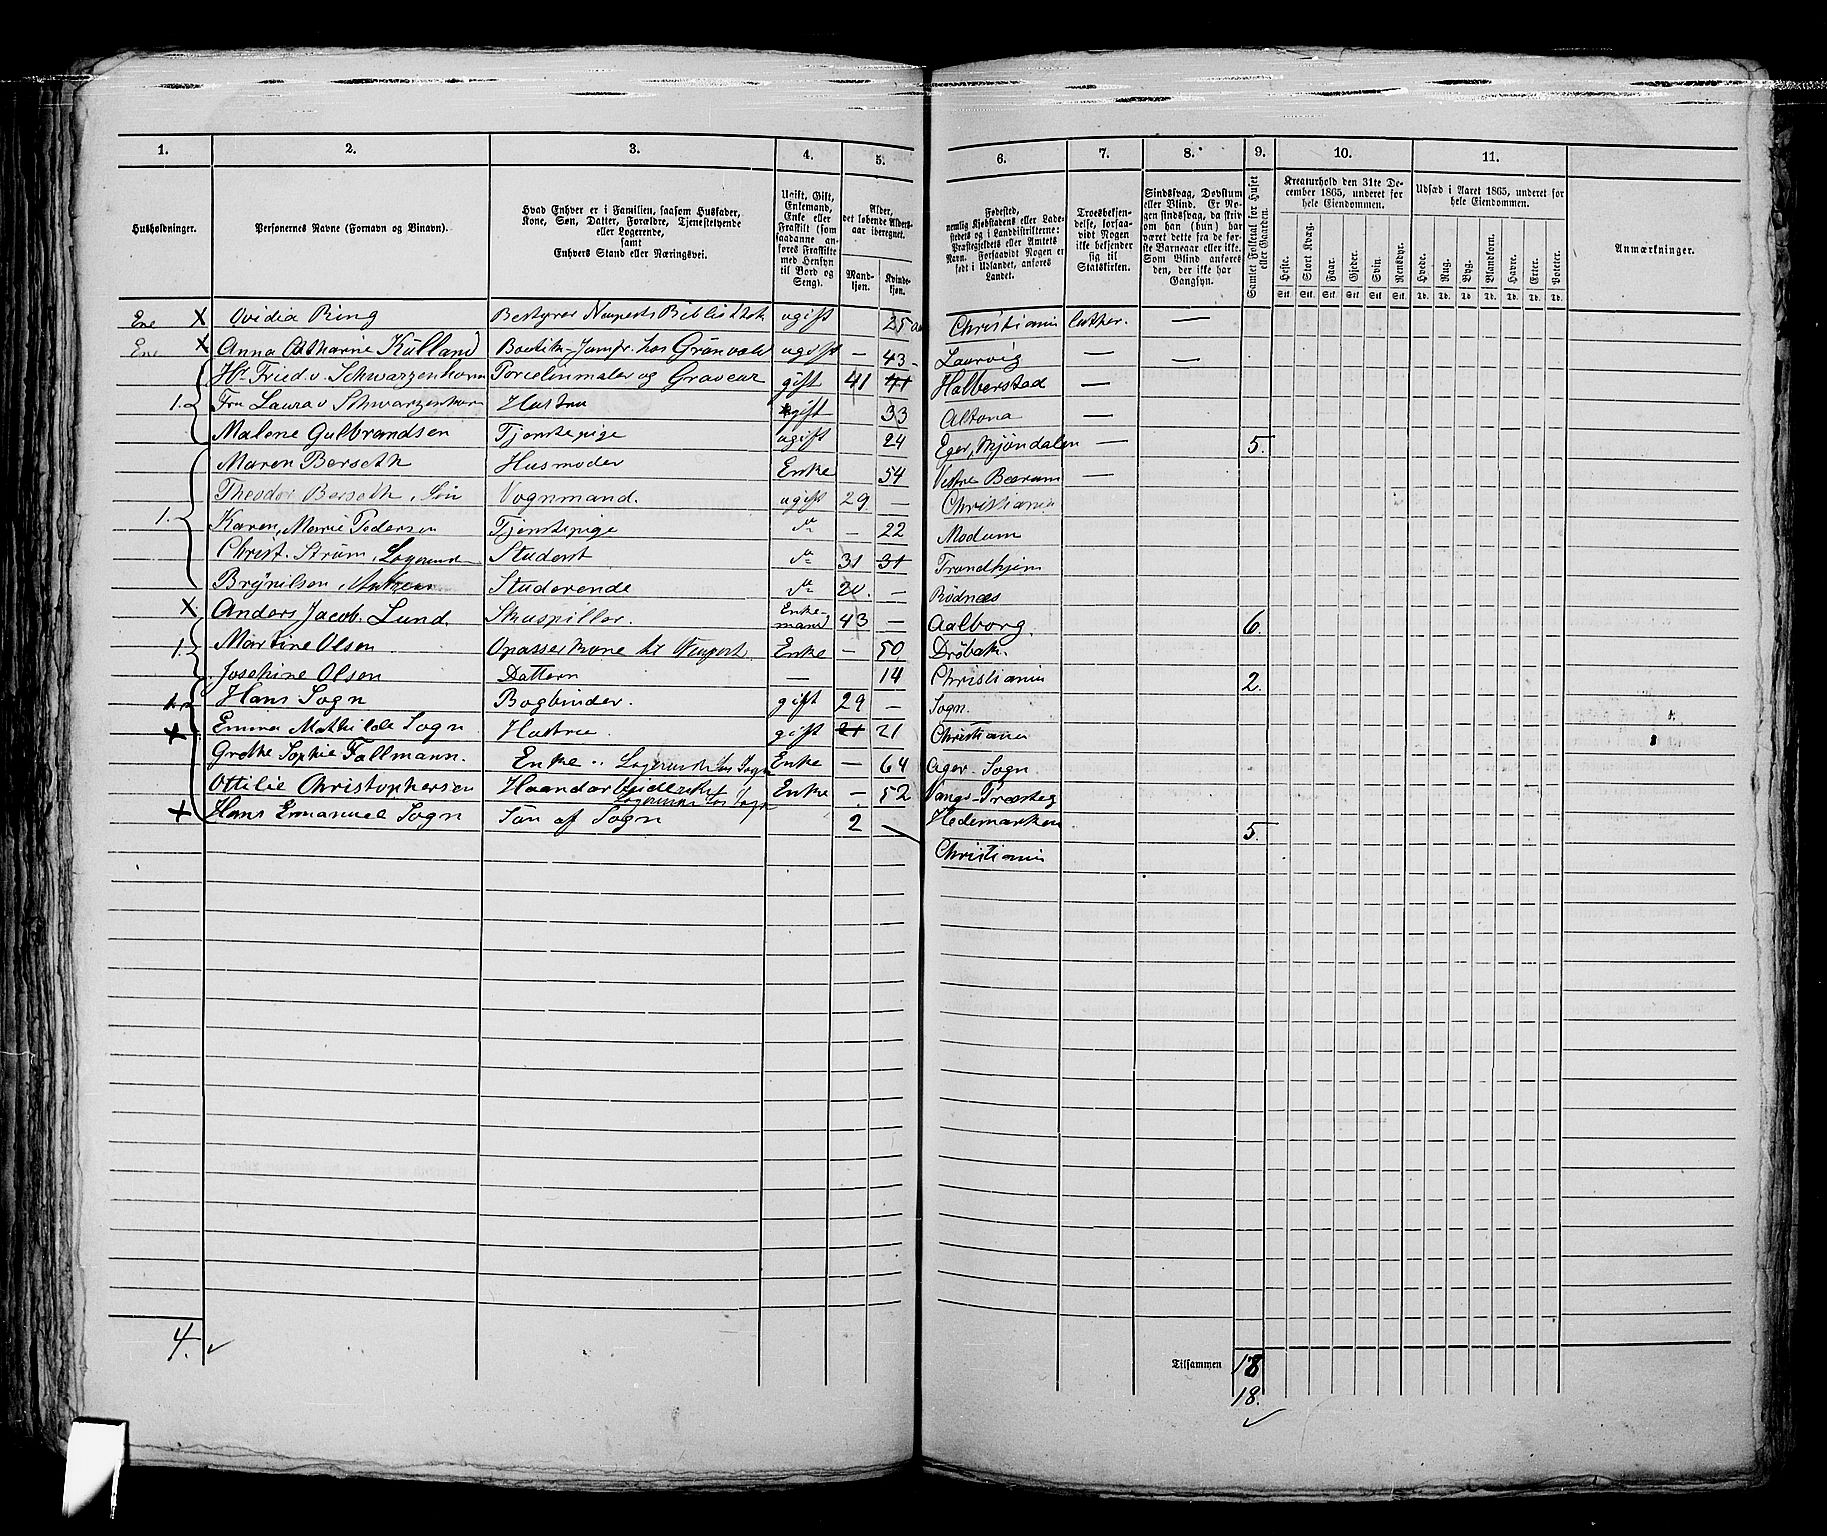 1. 2. 3. 4. 5. 6. 7. 8. 9. 10. 11.
Husholdninger.
Personernes Navne (Fornavn og Binavn).
Hvad Enhver er i Familien, saasom Husfader, Kone, Søn, Datter, Forældre, Tjenestetyende eller Logerende, samt Enhvers Stand eller Næringsvei.
Ugift, Gift, Enkemand, Enke eller Fraskilt (som saadanne anføres Fraskilte med Hensyn til Bord og Seng).
Alder, det løbende Alders-aar iberegnet.
Mand-kjøn. Kvinde-kjøn.
Fødested, nemlig Kjøbstadens eller Ladestedets og i Landdistrikterne: Præstegjeldets eller Amtets Navn. Forsaavidt Nogen er født i Udlandet, anføres Landet.
Troesbekjendelse, forsaavidt Nogen ikke bekjender sig til Statskirken.
Sindssvag, Døvstum eller Blind. Er Nogen sindssvag, da skrives om han (hun) har været dette fra de første Barneaar eller ikke. Som Blind anføres den, der ikke har Gangsyn.
Samlet Folketal for Huset eller Gaarden.
Kreaturhold den 31te December 1865, underet for hele Eiendommen.
Heste. Stort Kvæg. Faar. Gjeder. Svin. Rensdyr.
Stk. Stk. Stk. Stk. Stk. Stk.
Udsæd i Aaret 1865, underet for hele Eiendommen.
Hvede. Rug. Byg. Blandkorn. Havre. Erter. Poteter.
Td. Td. Td. Td. Td. Td. Td.
Anmærkninger.
Ene X Ovidia Ring Bestyrer Neuperts Bibliothek ugift 25 Christiania luther. —
Ene X Anna Catharine Külland Boutik-Jomfr. hos Grönvold ugift — 43 Laurvig — —
Hr Fried. v. Schwarzenhorn Porcelinmaler og Graveur gift 41 41 Halberstad —
1. Fru Laura v Schwarzenhorn Hustru gift 33 Altona —
Malene Gulbrandsen Tjenstepige ugift 24 Eger, Mjøndalen — 5.
Maren Berseth Husmoder Enke 54 Vestre Bærum —
Theodor Berseth, Søn Vognmand. ugift 29. — Christiania
1. Karen Marie Pedersen Tjenstepige — 22 Modum
Christ. Strøm, Logerende Student 31 31 Trondhjem
Brynilsen Studerende 20. — Rødnæs
X Anders Jacob Lund. Skuespiller. Enke-mand 43 — Aalborg. 6.
1. Martine Olsen Opasserkone til Neupert Enke — 50 Drøbak.
Josephine Olsen Datteren — 14 Christiania 2.
1. Hans Sogn Bogbinder. gift 29 — Sogn.
X Emma Mathilde Sogn Hustru. gift 21 21 Christiania
Grethe Sophie Fallmann. Enke. Logerende hos Sogn Enke — 64 Ager Sogn
Ottilie Christophersen Haandarbeiderske Logerende hos Sogn Enke — 52 Vangs Præsteg
X Hans Emmanuel Sogn Søn af Sogn 2 — Hedemarken 5.
Christiania
4.
Tilsammen 18
18.